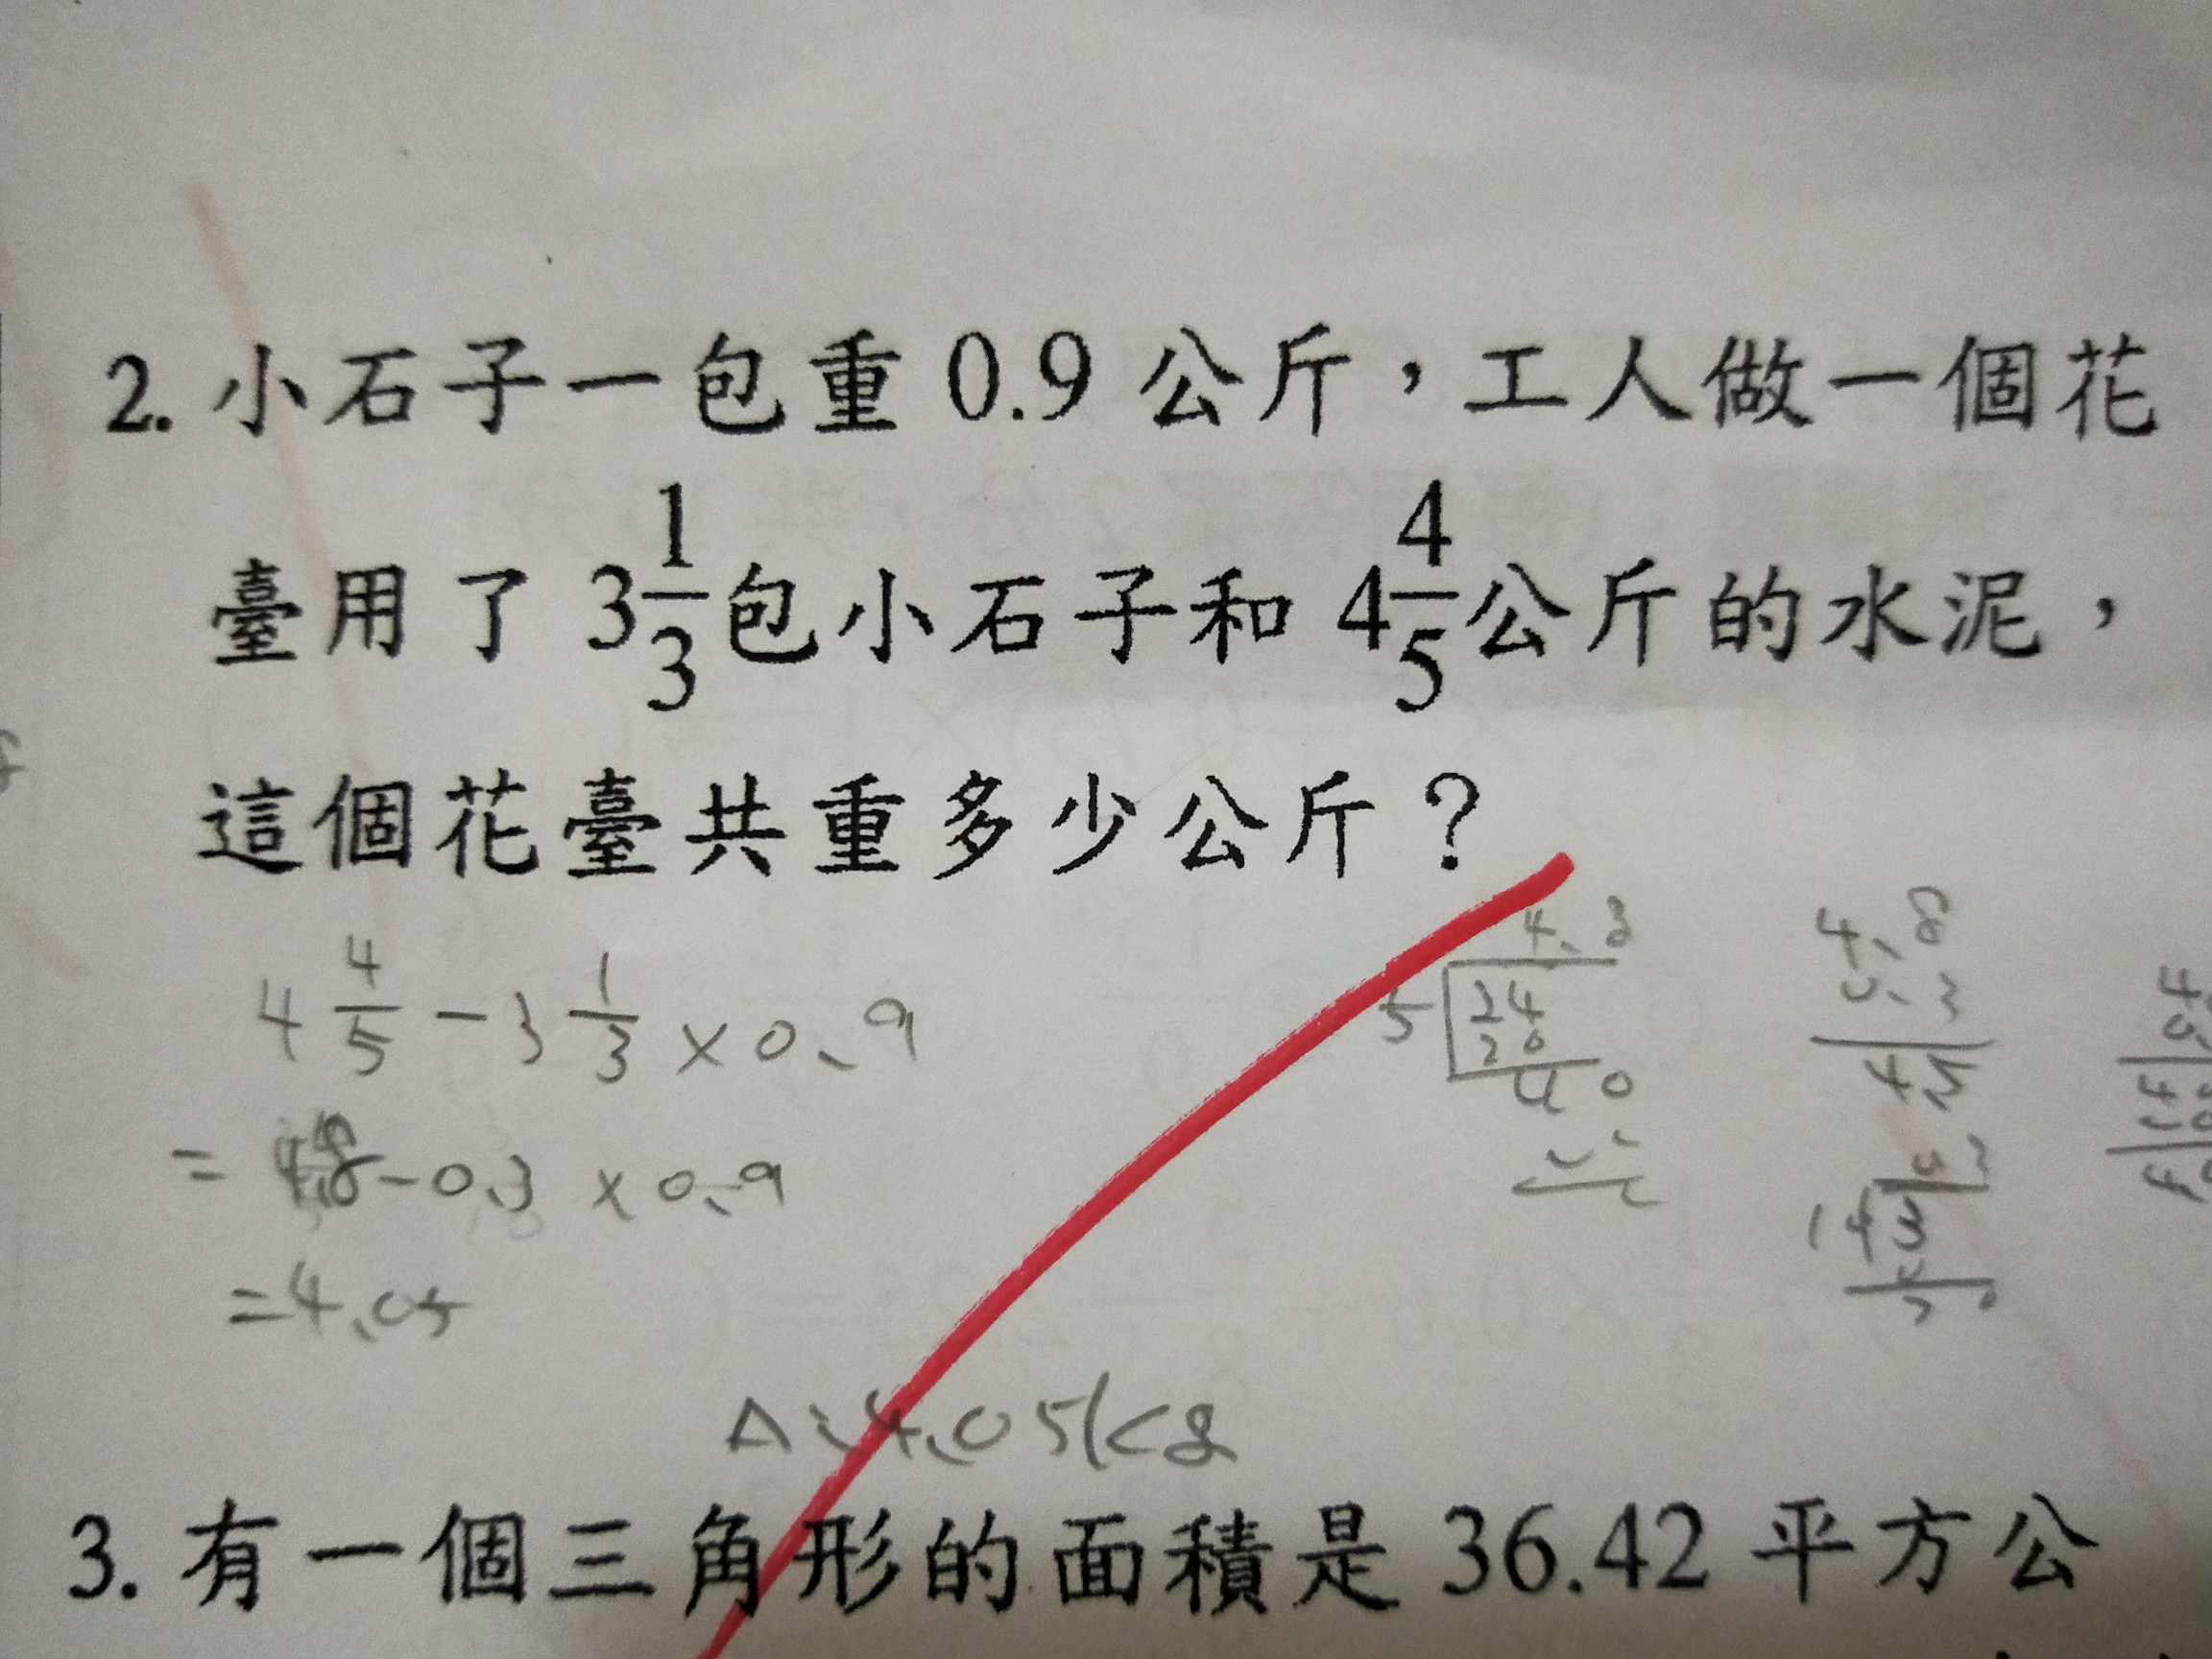 2. 小石子一包重 0.9 公斤，工人做一個花
臺用了 3 1/3 包小石子和 4 4/5 公斤的水泥，
這個花臺共重多少公斤？
4 4/5 - 3 1/3 × 0.9
= 4.8 - 0.3 × 0.9
= 4.05
4.8
5 24
20
40
4.8
A: 4.05kg
3. 有一個三角形的面積是 36.42 平方公